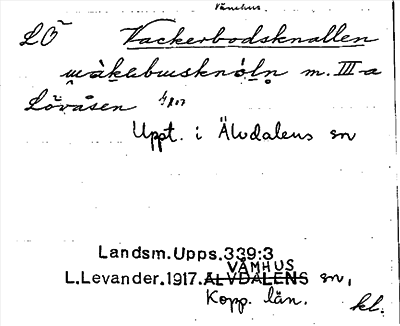 Våmhus.
LÖ Vackerbodsknallen
wàkabusknóln m. III a
Lövåsen 4/8 07
Uppt. i Älvdalens sn
Landsm.Upps.339:3
VÅMHUS
L.Levander.1917.ÄLVDALENS sn,
Kopp. län.
kl.